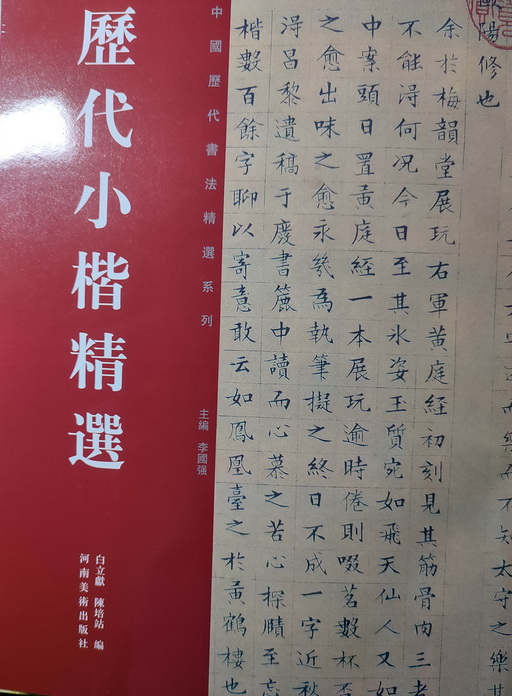 中國歷代書法精選系列
歷代小楷精選
主編 李國强
白立獻 陳培站 編
河南美術出版社
陽修也
余於梅韻堂展玩右軍黄庭經初刻見其筋骨肉三者
不能淂何况今日至其氷姿玉質宛如飛天仙人又如
中案頭日置黄庭經一本展玩逾時倦則啜茗數杯
之愈出味之愈永幾為執筆擬之終日不成一字近
淂昌黎遺稿于廢書簏中讀而心慕之苦心探賾至忘
楷數百餘字聊以寄意敢云如鳳凰臺之於黄鶴樓也
不知太守之樂其